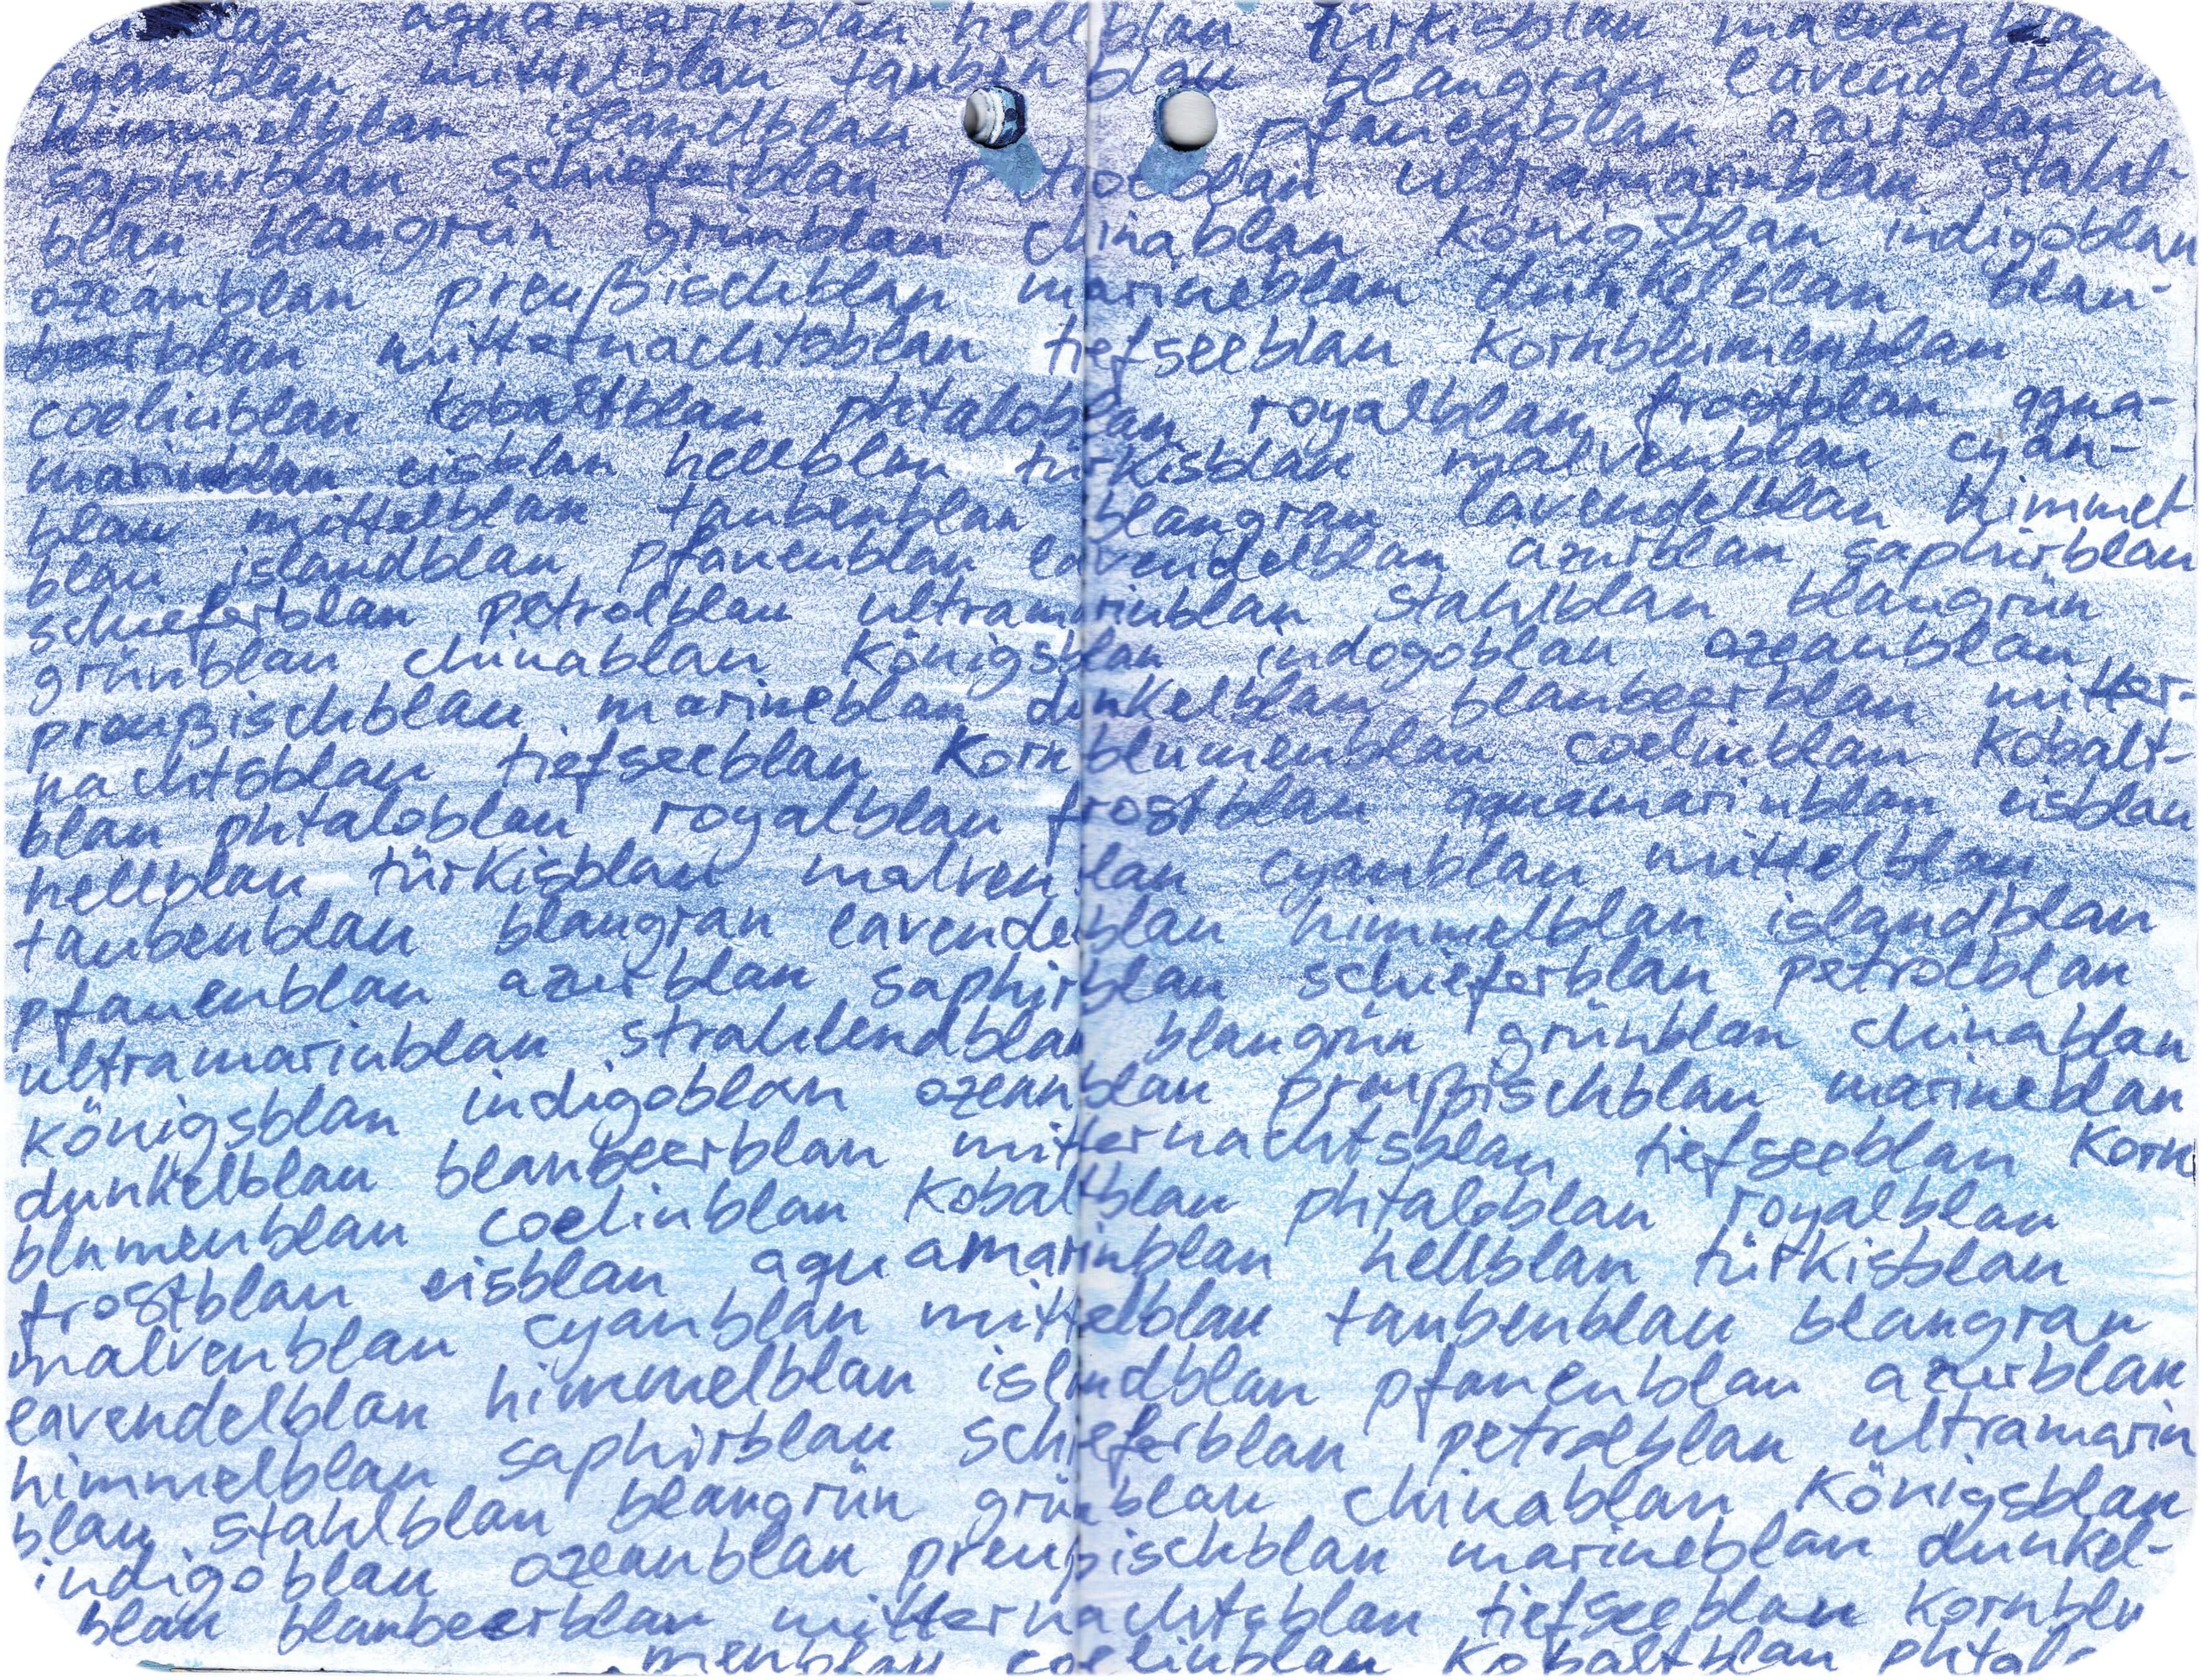 aquamarinblau hellblau türkisblau malvenblau
cyanblau mittelblau taubenblau blaugrau lavendelblau
himmelblau islandblau pfauenblau azurblau
saphirblau schieferblau petrolblau ultramarinblau stahl-
blau blaugrün grünblau chinablau königsblau indigoblau
ozeanblau preußischblau marineblau dunkelblau blau-
beerblau mitternachtsblau tiefseeblau kornblumenblau
coelinblau kobaltblau phtaloblau royalblau frostblau aqua-
marinblau eisblau hellblau türkisblau malvenblau cyan-
blau mittelblau taubenblau blaugrau lavendelblau himmel
blau islandblau pfauenblau lavendelblau azurblau saphirblau
schieferblau petrolblau ultramarinblau stahlblau blaugrün
grünblau chinablau königsblau indogoblau ozeanblau
preußischblau marineblau dunkelblau blaubeerblau mitter-
nachtsblau tiefseeblau kornblumenblau coelinblau kobalt-
blau phtaloblau royalblau frostblau aquamarinblau eisblau
hellblau türkisblau malvenblau cyanblau mittelblau
taubenblau blaugrau lavendelblau himmelblau islandblau
pfauenblau azurblau saphirblau schieferblau petrolblau
ultramarinblau strahlendblau blaugrün grünblau chinablau
königsblau indigoblau ozeanblau preußischblau marineblau
dunkelblau blaubeerblau mitternachtsblau tiefseeblau korn
blumenblau coelinblau kobaltblau phtaloblau royalblau
frostblau eisblau aquamarinblau hellblau türkisblau
malvenblau cyanblau mittelblau taubenblau blaugrau
lavendelblau himmelblau islandblau pfauenblau azurblau
himmelblau saphirblau schieferblau petrolblau ultramarin
blau stahlblau blaugrün grünblau chinablau königsblau
indigoblau ozeanblau preußischblau marineblau dunkel-
blau blaubeerblau mitternachtsblau tiefseeblau kornblu
menblau coelinblau kobaltblau phtalo